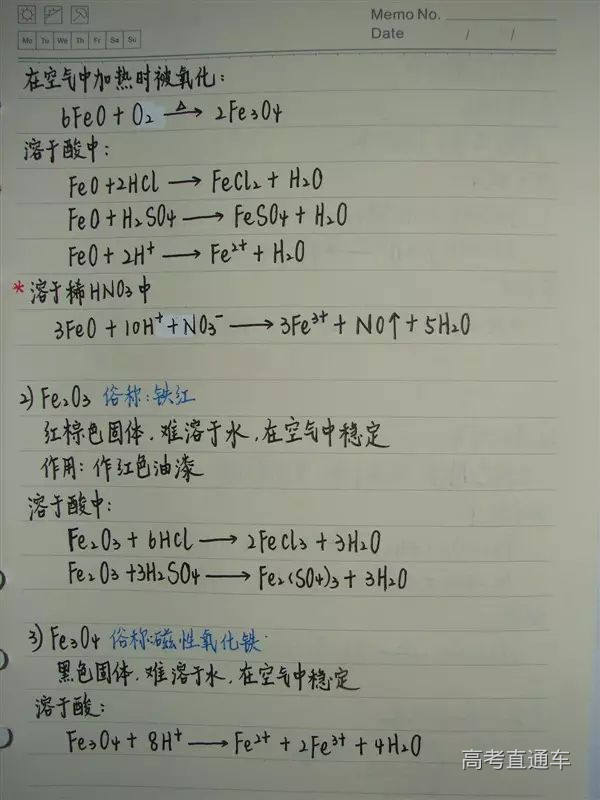 Memo No.
Date / /
Mo Tu We Th Fr Sa Su
在空气中加热时被氧化:
6FeO + O₂ —△→ 2Fe₃O₄
溶于酸中:
FeO + 2HCl → FeCl₂ + H₂O
FeO + H₂SO₄ → FeSO₄ + H₂O
FeO + 2H⁺ → Fe²⁺ + H₂O
*溶于稀HNO₃中
3FeO + 10H⁺ + NO₃⁻ → 3Fe³⁺ + NO↑ + 5H₂O
2) Fe₂O₃ 俗称:铁红
红棕色固体.难溶于水.在空气中稳定
作用:作红色油漆
溶于酸中:
Fe₂O₃ + 6HCl → 2FeCl₃ + 3H₂O
Fe₂O₃ + 3H₂SO₄ → Fe₂(SO₄)₃ + 3H₂O
3) Fe₃O₄ 俗称:磁性氧化铁.
黑色固体.难溶于水.在空气中稳定
溶于酸:
Fe₃O₄ + 8H⁺ → Fe²⁺ + 2Fe³⁺ + 4H₂O
高考直通车